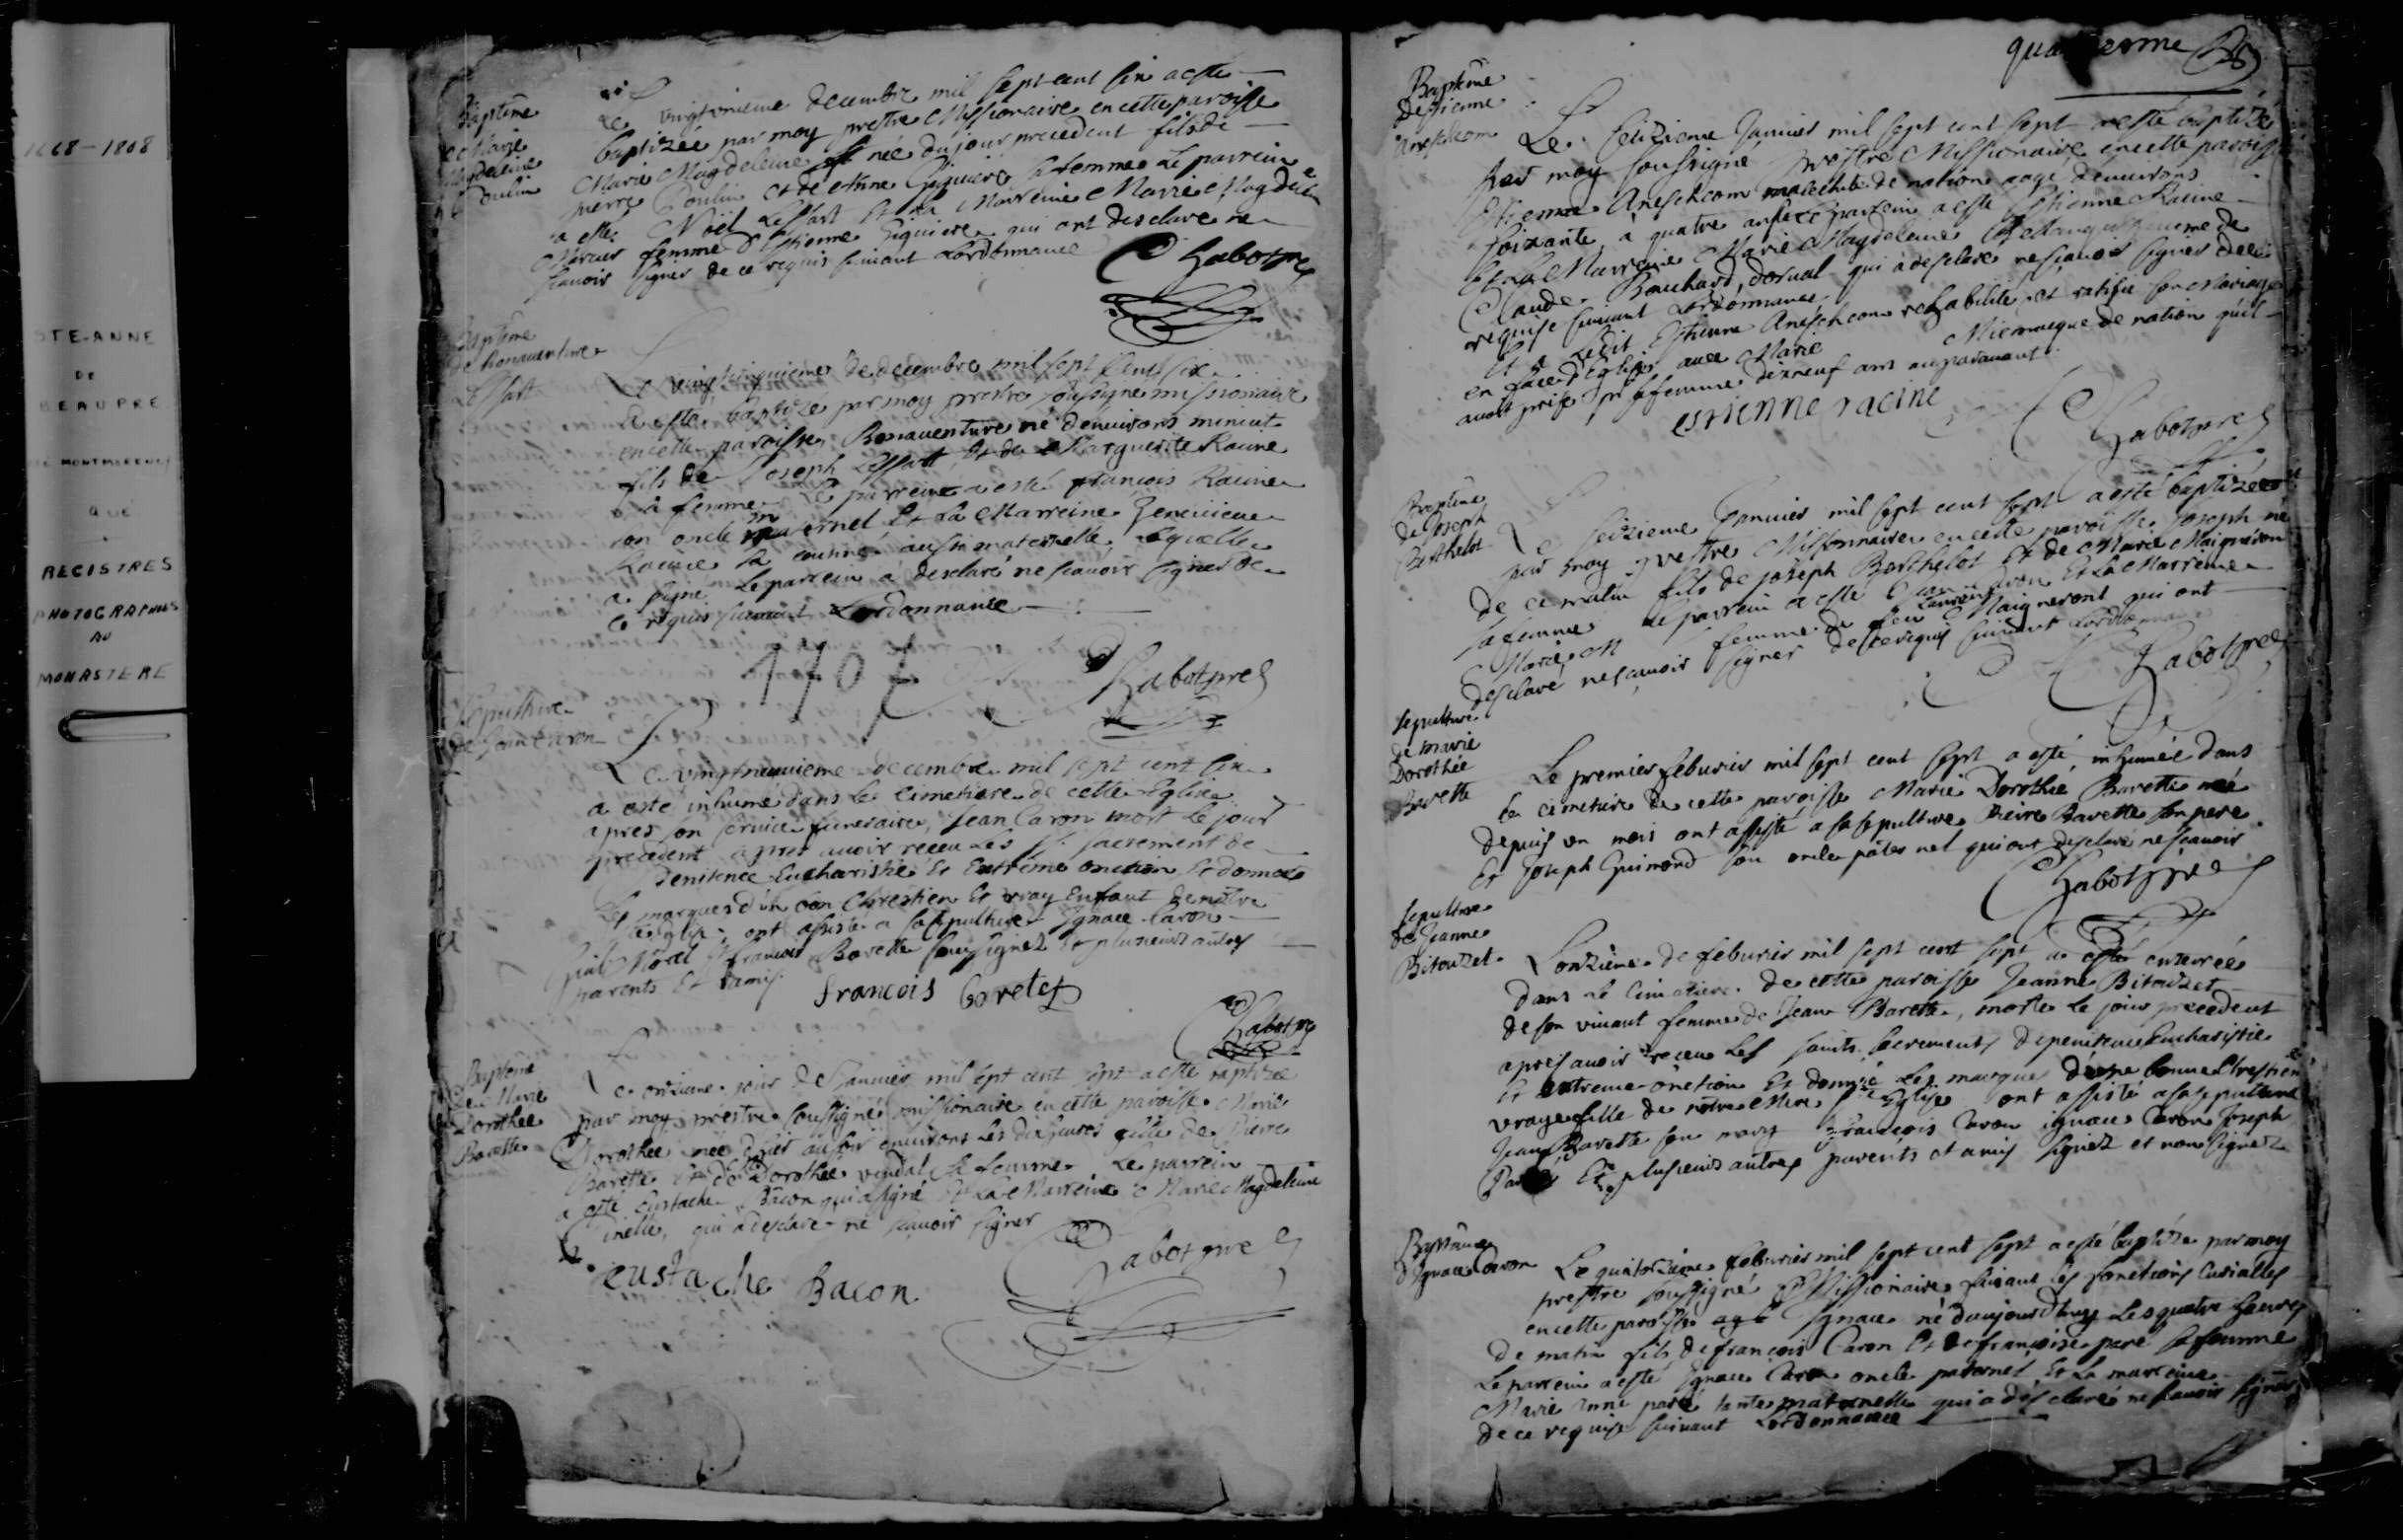 1668-1808
STE-ANNE
DE
BEAUPRE
MONTMORENCY
QUE
REGISTRES
PHOTOGRAPHIES
AU
MONASTERE
Baptême
de Marie
Magdeleine
Poulin
Le vingtunième decembre mil sept cent six a esté
baptizée par moy prestre Missionaire en cette paroisse
Marie Magdeleine née du jour precedent fils de
pierre Poulin et de Anne Giguiere sa femme Le parrein
a esté Noël Lessart et la Marreine Marie Magdel
Mercier femme d'Estienne Giguiere qui ont desclaré ne
scavoir signer de ce requis suivant Lordonnance
Chabot pre
Baptême
de Bonaventure
Lessart
Le vingtcinquieme de decembre mil sept cent six
a esté baptizé par moy prestre soussigné missionaire
en cette paroisse Bonaventure né d'environs minuit
fils de Joseph Lessart et de Marguerite Racine
sa femme Le parrein a esté françois Racine
son oncle maternel Et La Marreine Genevieve
Racine sa cousine aussi maternelle laquelle
a signé Le parrein a desclaré ne scavoir signer de
ce requis suivant Lordonnance
1707
Chabot pre
Sepulture
de Jean Caron
Le vingtneuvieme decembre mil sept cent six
a esté inhumé dans le cimetiere de cette Eglise
apres son service funeraire, Jean Caron mort le jour
precedent apres avoir receu Les Sts sacrement de
penitence Eucharistie et Extreme onction Et donné
Les marques d'un bon Chrestien Et vray Enfant de nostre
Eglise, ont assisté a sa sepulture Ignace Caron
Morel françois Barette soussignez et plusieurs autres
parents Et amis
francois baretet
Chabot pre
Baptême
de Marie
Dorothee
Barette
Le onzieme jour de Janvier mil sept cent sept a esté baptizée
par moy prestre soussigné missionaire en cette paroisse Marie
Dorothee née d'hier au soir environs les dix heures fille de Pierre
Barette Et de Dorothée vandal sa femme. Le parrein
a esté Eustache Bacon qui a signé Et La Marreine Marie Magdeleine
Cinelle, qui a desclaré ne scavoir signer
eustache Bacon
Chabot pre
Baptême
destienne
Aneschcom
Le seizieme Janvier mil sept cent sept a esté baptizé
par moy soussigné prestre Missionaire en cette paroisse
Etienne Aneschcom malechite de nation aagé denvirons
soixante a quatre ans Le parrein a esté Estienne Racine
Et La Marreine Marie Magdeleine femme de
Claude Bouchard, dorval qui a desclaré ne scavoir signer de ce
requise suivant Lordonnance
Et a Ledit Estienne Aneschcom rehabilité et ratifié son Mariage
en face d'Eglise avec Marie Miemacque de nation quil
avoit prise pr sa femme dixneuf ans auparavant
estienne racine
Chabot pre
Baptême
de Joseph
Berthelot
Le seizieme Janvier mil sept cent sept a esté baptizée
par moy prestre Missionnaire en cette paroisse Joseph né
de ce matin fils de joseph Berthelot Et de Marie Maigneron
sa femme Le parrein a esté Jean Et La Marreine
Marie femme de feu Laurent Maigneront qui ont
desclaré ne scavoir signer de ce requis suivant Lordonnance
Chabot pre
sepulture
de marie
Dorothée
Barette
Le premier feburier mil sept cent sept a esté inhumée dans
le cimetiere de cette paroisse Marie Dorothée Barette née
depuis un mois ont assisté a sa sepulture Pierre Barette son pere
Et Joseph Guimond son oncle paternel qui ont desclaré ne scavoir
Chabot pre
sepulture
de Jeanne
Bitouzet
Lonzieme de feburier mil sept cent sept a esté enterrée
dans le cimetiere de cette paroisse Jeanne Bitouzet
de son vivant femme de Jean Barette, morte le jour precedent
apres avoir receu Les saints sacrements de penitence Eucharistie
Et extreme onction Et donné Les marques d'une bonne Chrestiene
vraye fille de nostre Mere Ste Eglise ont assisté a sa sepulture
Jean Barette son mary françois Caron ignace Caron Joseph
Paré Et plusieurs autres parents et amis signez et non signez
Baptême
d'Ignace Caron
Le quatorzieme feburier mil sept cent sept a esté baptizé par moy
prestre soussigné Missionaire faisant les fonctions Curialles
en cette paroisse Ignace né daujourdhuy Les quatre heures
de matin fils de françois Caron Et de françoise paré sa femme
Le parrein a esté Ignace Caron oncle paternel, Et La marreine
Marie Anne paré tante maternelle qui a desclaré ne scavoir signer
de ce requise suivant Lordonnance